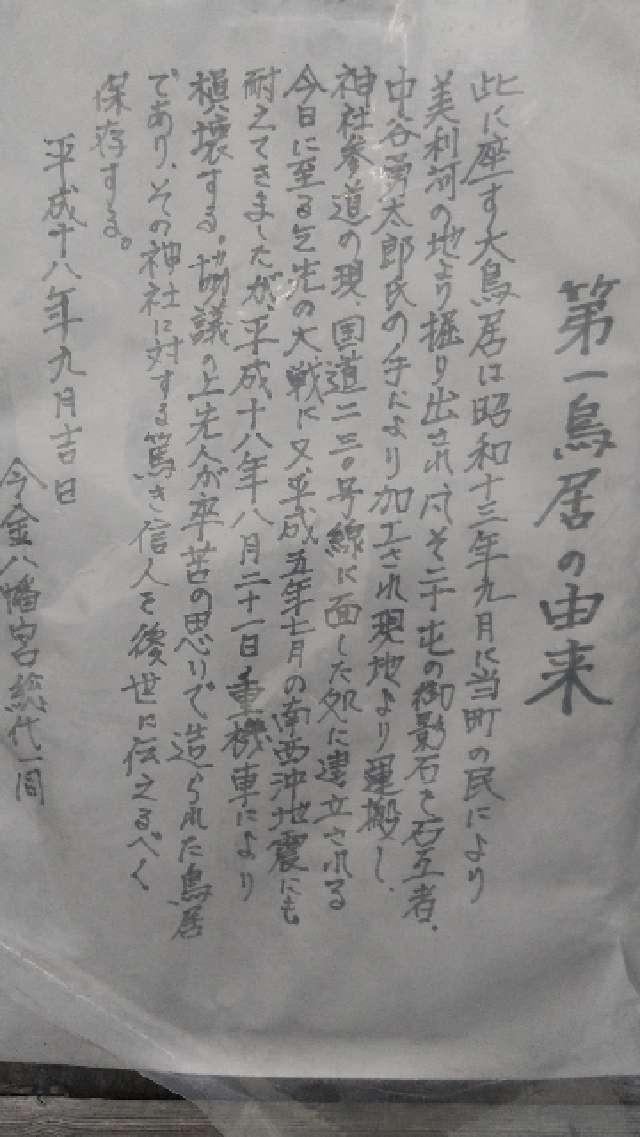 第一鳥居の由来
此に座す大鳥居は昭和十三年九月に当町の民により
美利河の地より掘り出され凡そ二十屯の御影石を石工者、
中谷勇太郎氏の手により加工され現地より運搬し、
神社参道の現、国道二三〇号線に面した処に建立される
今日に至る迄先の大戦に又、平成五年七月の南西沖地震にも
耐えてきましたが、平成十八年八月二十一日重機車により
損壊する。協議の上先人が辛苦の思いで造られた鳥居
であり、その神社に対する篤き信人を後世に伝えるべく
保存する。
平成十八年九月吉日
今金八幡宮総代一同